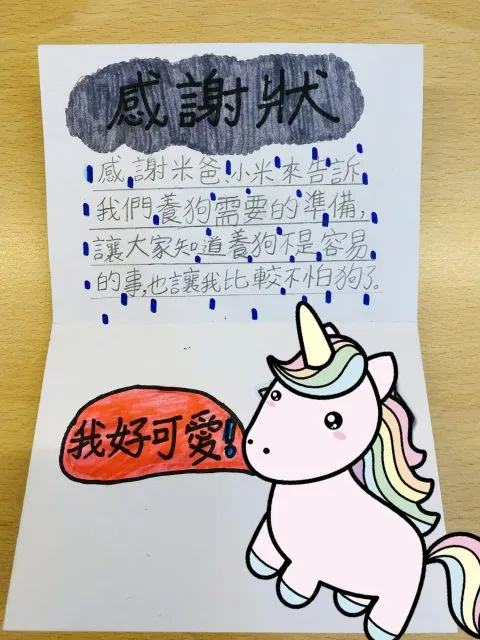 感謝狀
感謝米爸、小米來告訴
我們養狗需要的準備,
讓大家知道養狗不是容易
的事,也讓我比較不怕狗了。
我好可愛!